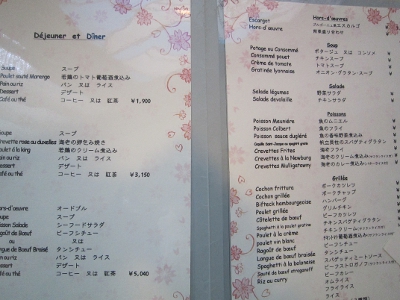 Déjeuner et Dîner
Soupe スープ
Poulet sauté Marengo 若鶏のトマト葡萄酒煮込み
Pain ou riz パン 又は ライス
Dessert デザート
Café ou thé コーヒー 又は 紅茶 ¥1,900
Soupe スープ
海老の卵包み焼き
Poulet à la king 若鶏のクリーム煮込み
Pain ou riz パン 又は ライス
Dessert デザート
Café ou thé コーヒー 又は 紅茶 ¥3,150
Hors-d'œuvre オードブル
Soupe スープ
Poisson Salade シーフードサラダ
Ragoût de Bœuf ビーフシチュー
ou 又は
Langue de Bœuf Braisé タンシチュー
Pain ou riz パン 又は ライス
Dessert デザート
Café ou thé コーヒー 又は 紅茶 ¥5,040
Hors-d'œuvres
Escargot エスカルゴ
Hors-d'œuvre 前菜盛り合わせ
Soup
Potage ou Consommé ポタージュ 又は コンソメ ¥
Consommé pouet チキンスープ ¥
Crème de tomate トマトスープ ¥
Gratinée lyonnaise オニオン・グラタン・スープ ¥
Salade
Salade légumes 野菜サラダ ¥
Salade de volaille チキンサラダ ¥
Poissons
Poisson Meunière 魚のムニエル ¥
Poisson Colbert 魚のフライ ¥
Poisson sauce dugléré 魚の香味野菜煮込み ¥
帆立貝柱のスパゲティグラタン ¥
Crevettes Frites 海老のフライ ¥
Crevettes à la Newburg 海老のクリーム煮込み ¥
Crevettes Mulligatawny 海老のカレー煮込み ¥
Grillée
Cochon friture ポークカツレツ ¥
Cochon grillé ポークチャップ ¥
Bifteck hambourgeoise ハンバーグ ¥
Poulet grillée グリルチキン ¥
Côtelette de bœuf ビーフカツレツ ¥
Spaghetti à la poulet gratin チキンスパゲティグラタン ¥
Poulet à la crème
poulet vin blanc
Ragoût de bœuf ビーフシチュー ¥
Langue de bœuf Braisé タンシチュー ¥
Spaghetti à la bolonaise スパゲッティミートソース ¥
Sauté de bœuf stroganoff ビーフストロガノフ
Riz au curry カレーライス
オムライス
チキンライス
ハヤシライス
ライス